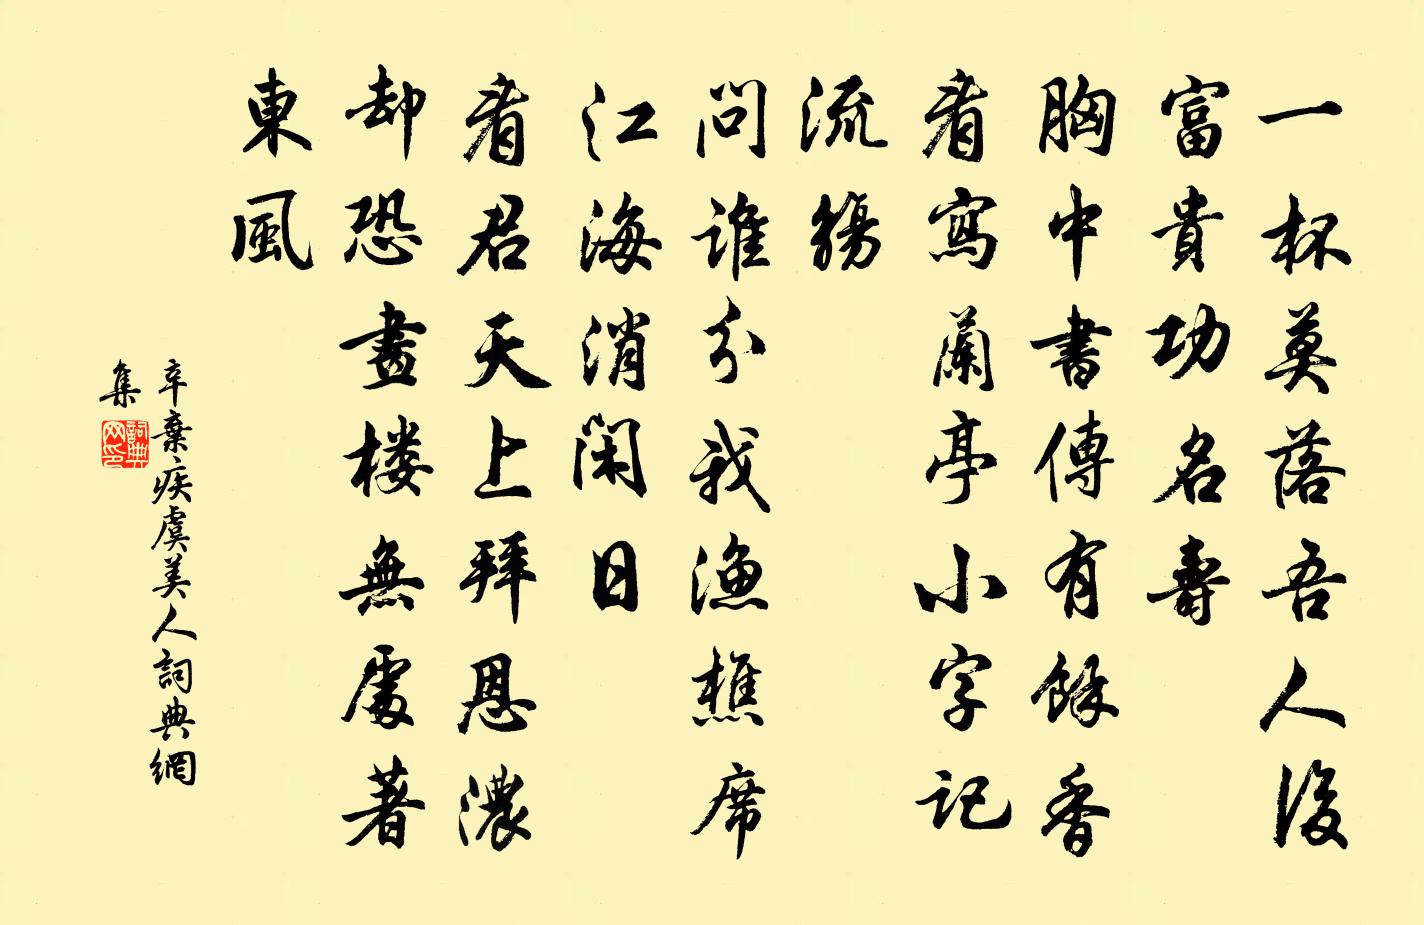 一杯莫落吾人後
富貴功名壽
胸中書傳有餘香
看寫蘭亭小字記
流觴
問誰分我漁樵席
江海消閑日
看君天上拜恩濃
却恐畫樓無處著
東風
辛棄疾虞美人詞典網
集
詞典網印